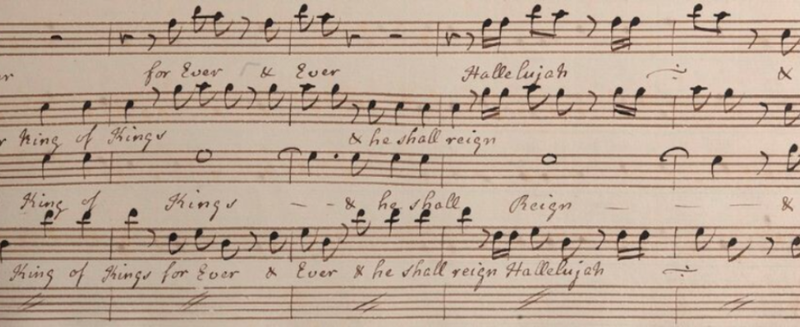 r for Ever & Ever Hallelujah &
r King of Kings & he shall reign
King of Kings & he shall Reign &
King of Kings for Ever & Ever & he shall reign Hallelujah